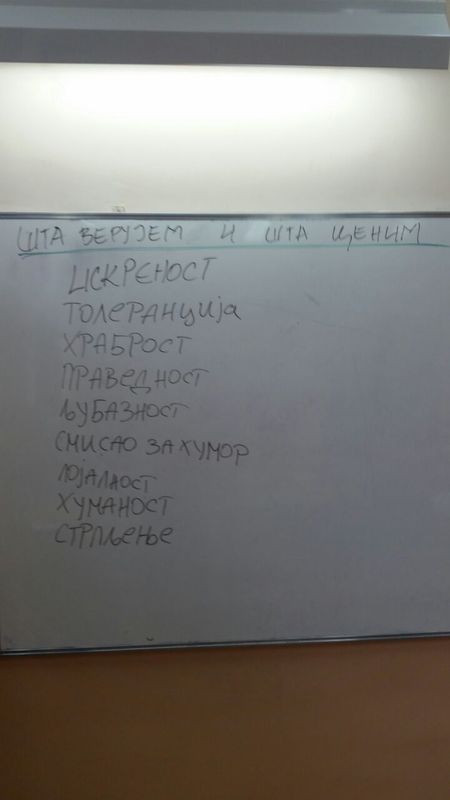 ШТА ВЕРУЈЕМ И ШТА ЦЕНИМ
ИСКРЕНОСТ
ТОЛЕРАНЦИЈА
ХРАБРОСТ
ПРАВЕДНОСТ
ЉУБАЗНОСТ
СМИСАО ЗА ХУМОР
ЛОЈАЛНОСТ
ХУМАНОСТ
СТРПЉЕЊЕ